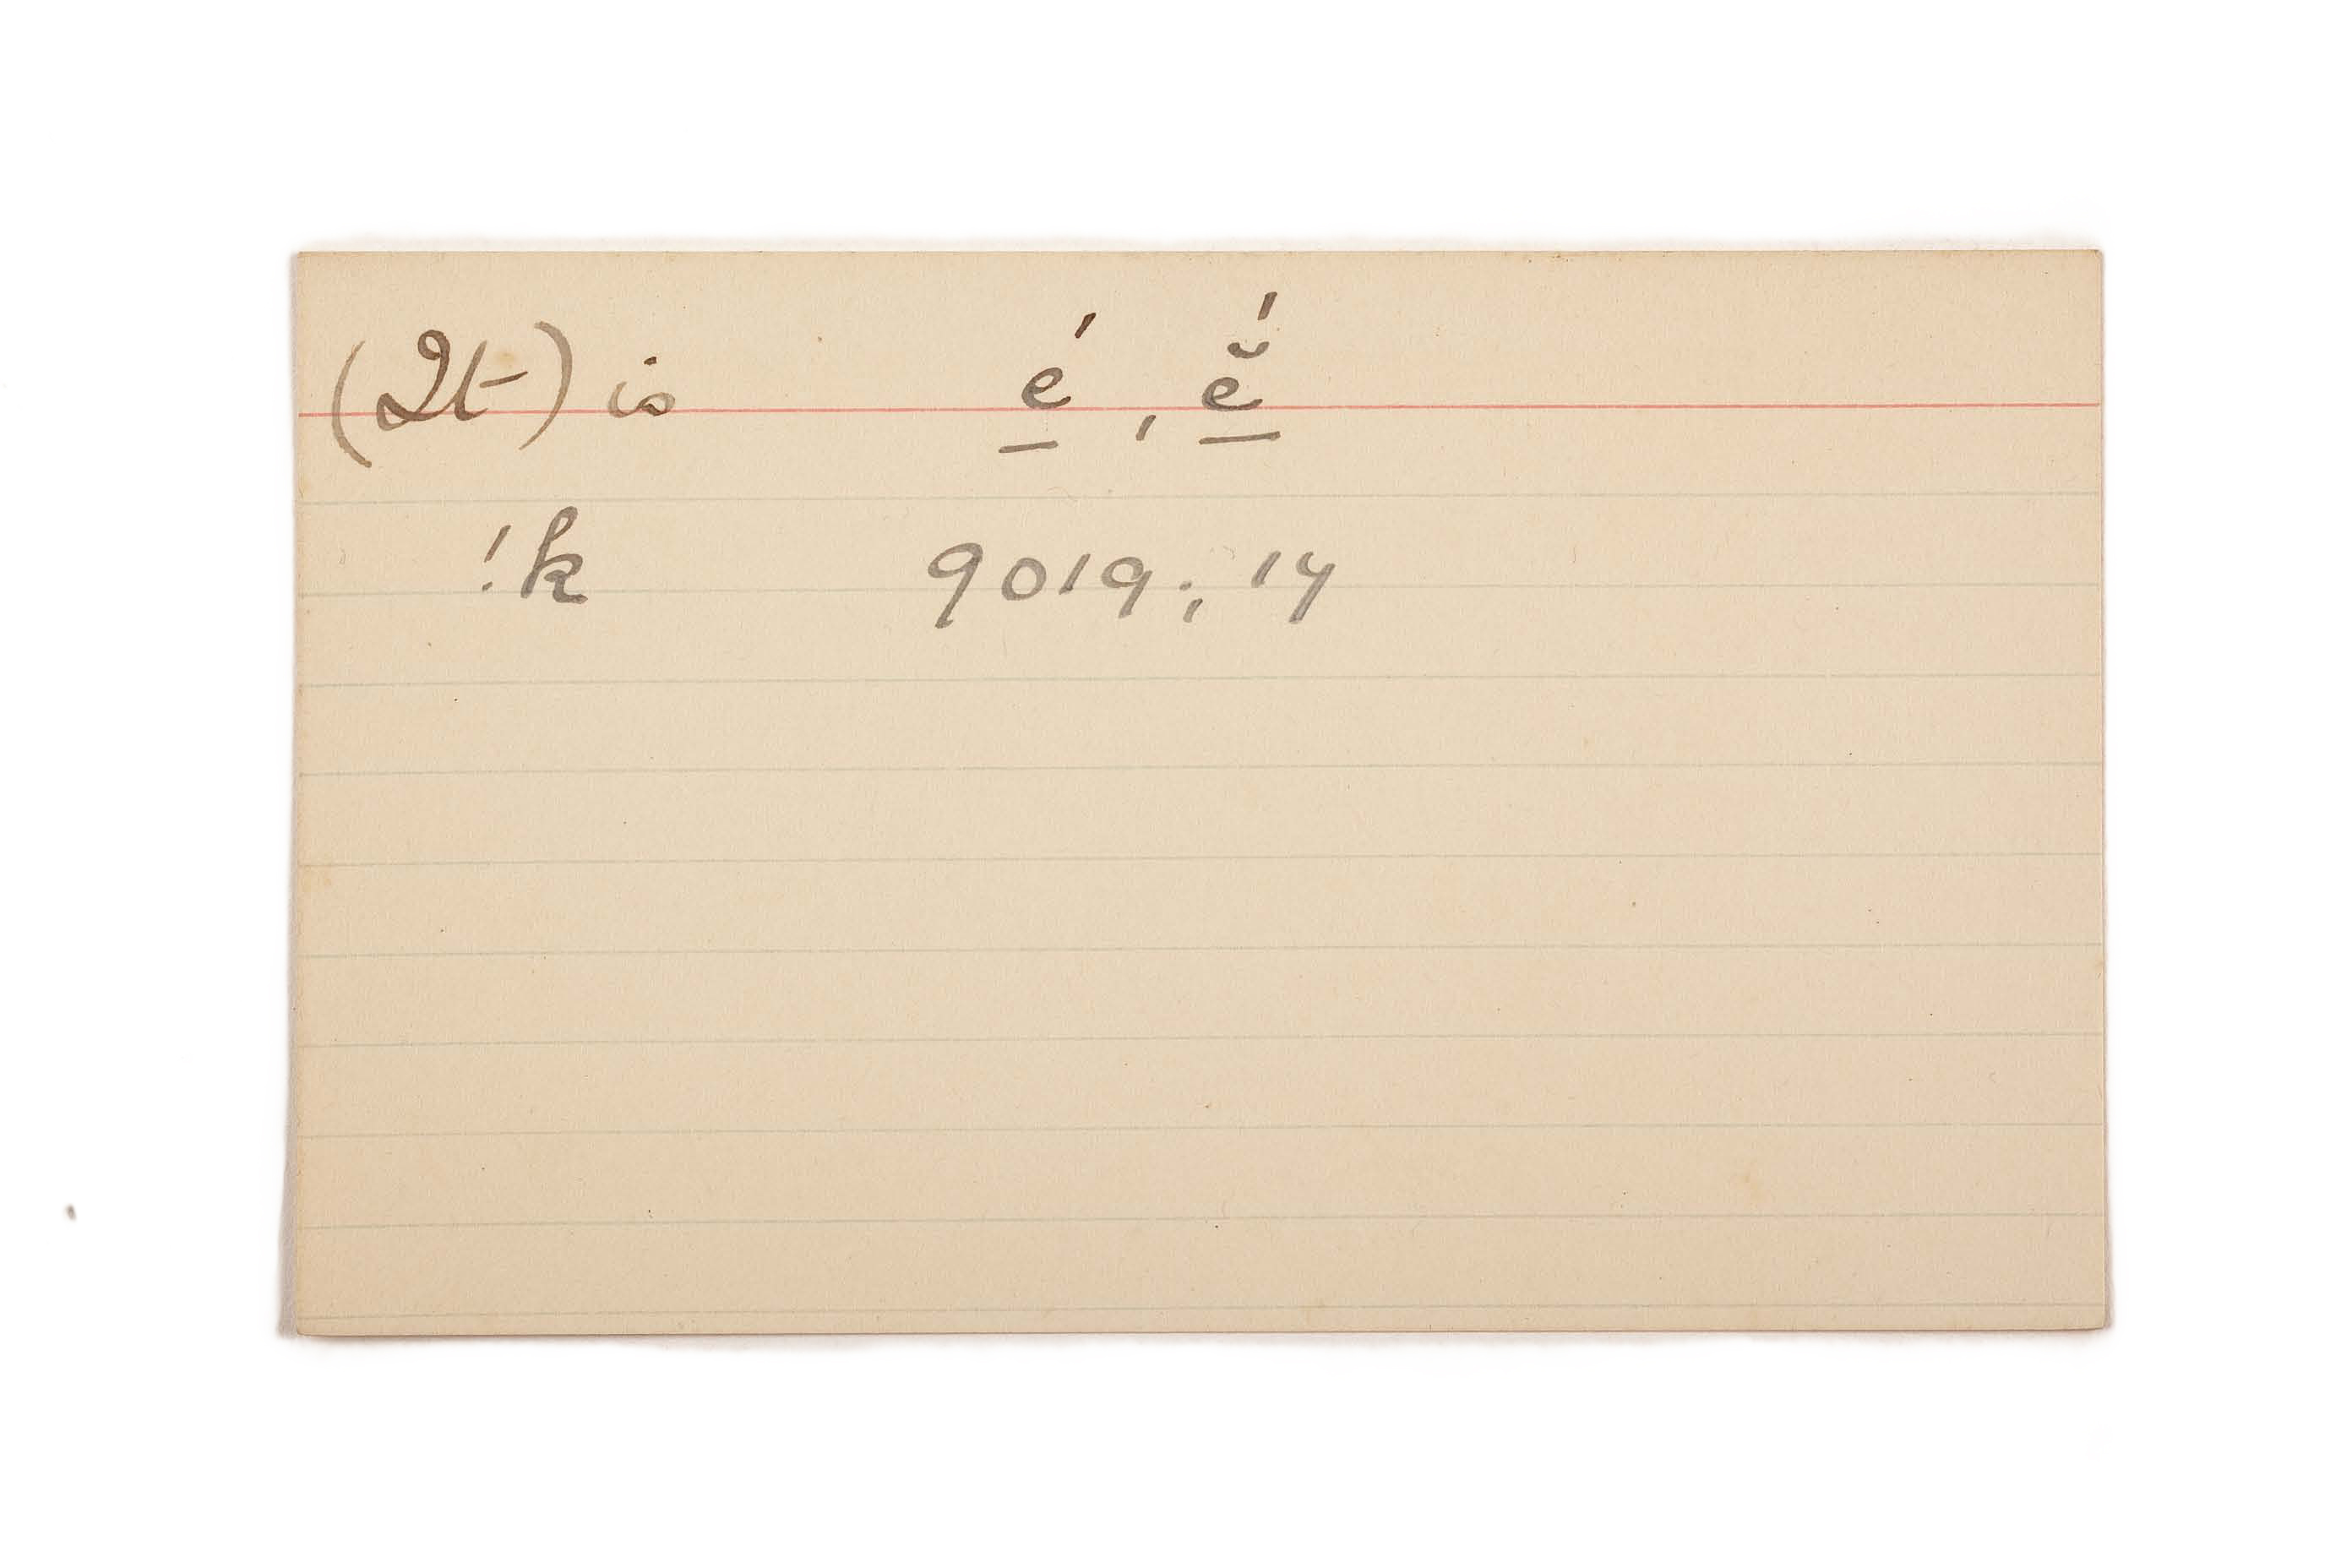 (It) is é̱, ĕ̱́
!k 9019; 14